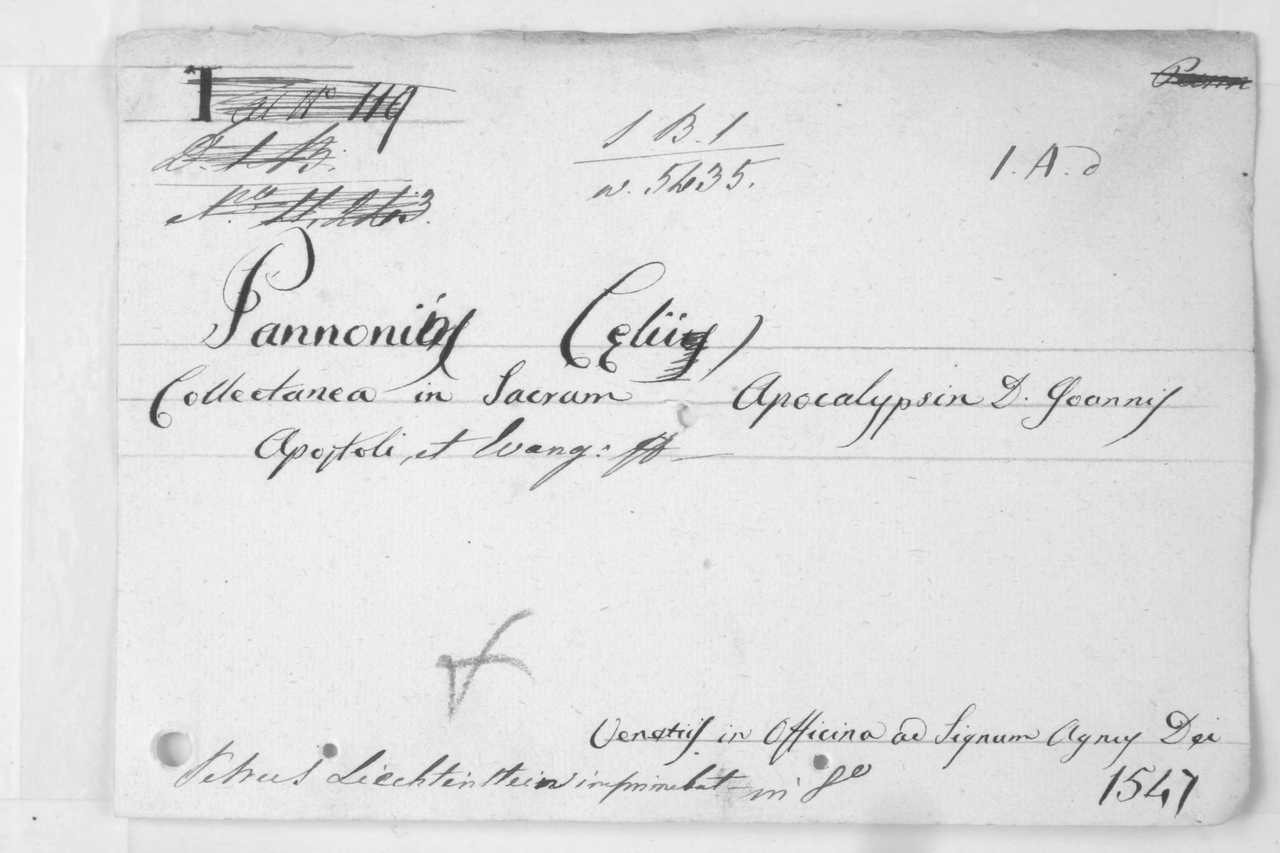 119
1 B. 1
n. 5435.
1. A. d
Pannonii (Cęlii)
Collectanea in Sacram Apocalypsin D. Joannis
Apostoli, et Evang:
Venetiis in Officina ad Signum Agnus Dei
Petrus Liechtenstein imprimebat in 8º
1547